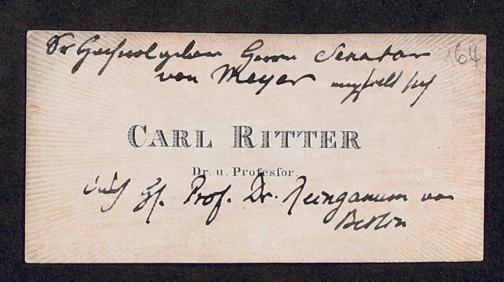 Sr Hochwolgeboren Herrn Senator
von Meyer empfielt sich
164
CARL RITTER
Dr. u. Professor.
Hr. Prof. Dr. Reinganum von
Berlin